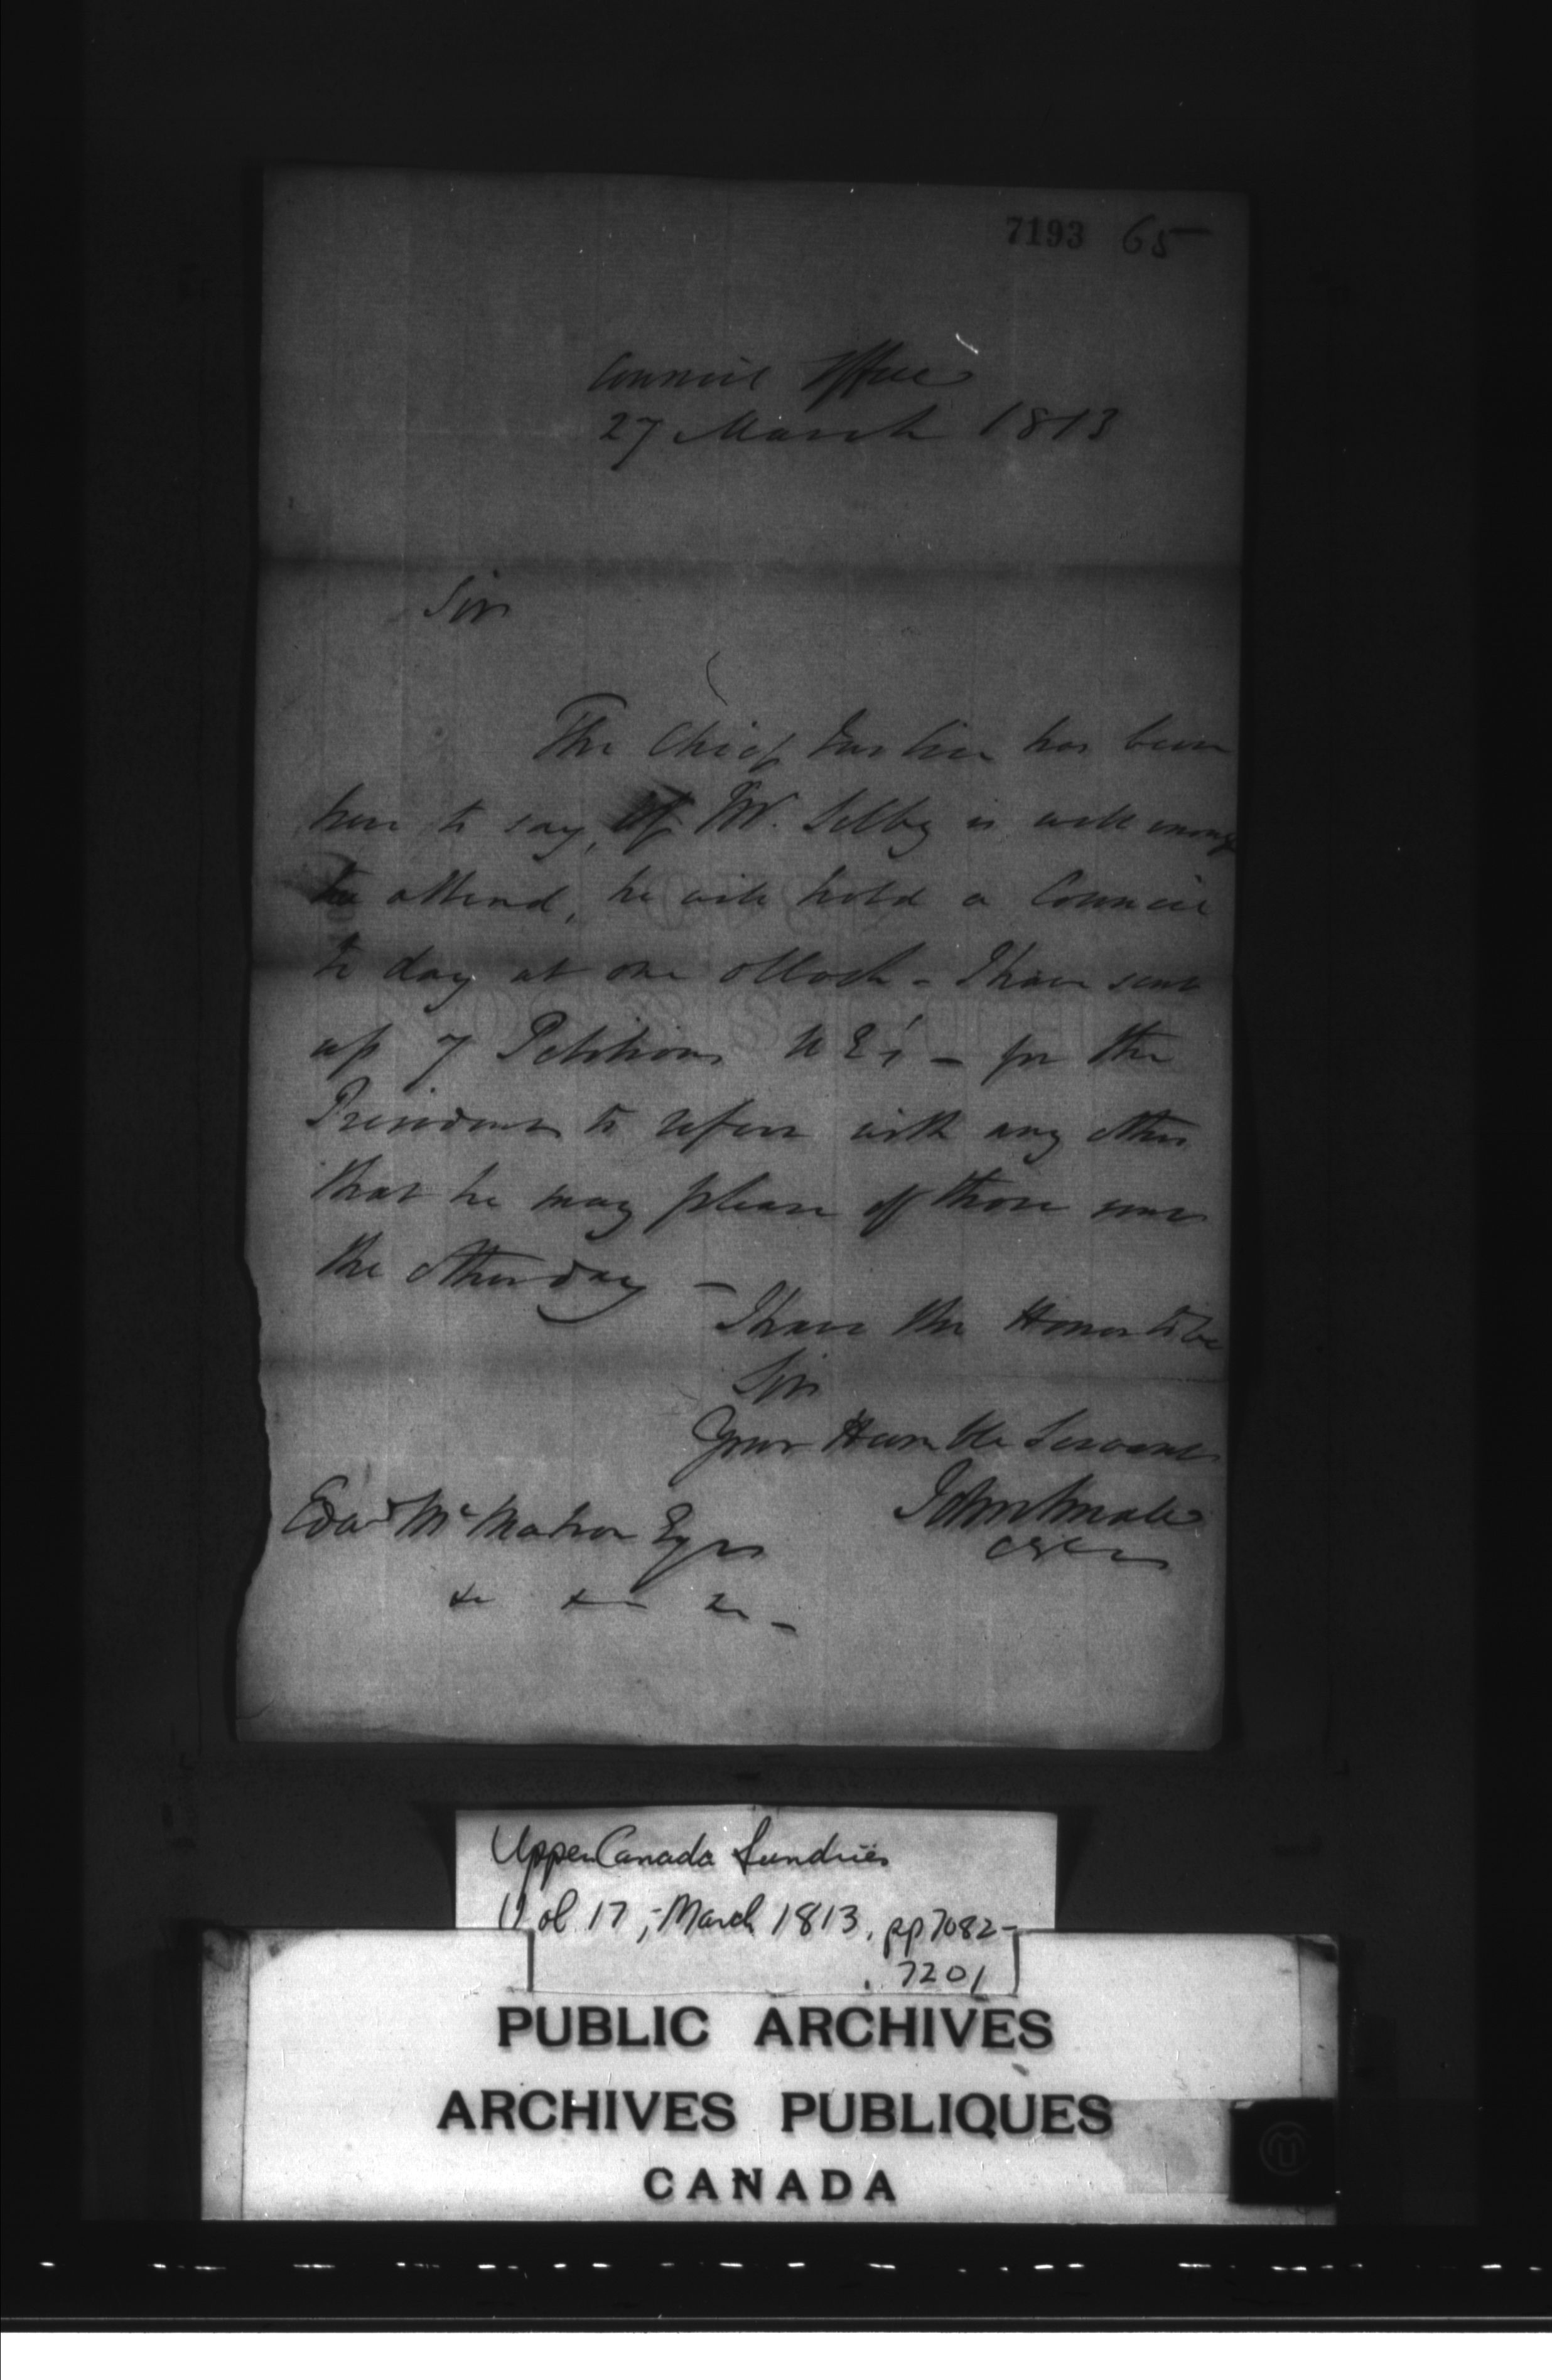 7193 65
Council Office
27 March 1813
Sir
The Chief Justice has been
here to say, If Mr. Selby is well enough
to attend, he will hold a Council
to day at one oClock - I have sent
up 7 Petitions UE's - for the
President to refer with any other
that he may please of those sent
the other day -
I have the Honor to be
Sir
Your Humble Servant
John Small
Edwd McMahon Esqr
&c &c &c -
Upper Canada Sundries
Vol. 17, March 1813, pp 7082-
7201
PUBLIC ARCHIVES
ARCHIVES PUBLIQUES
CANADA